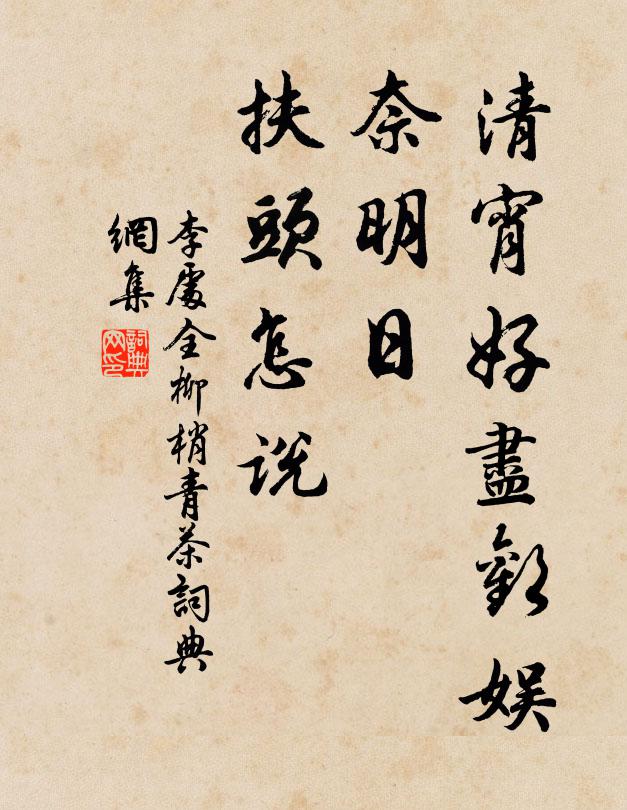 清宵好盡歡娛
奈明日
扶頭怎說
李處全柳梢青茶詞典
網集
詞典網印